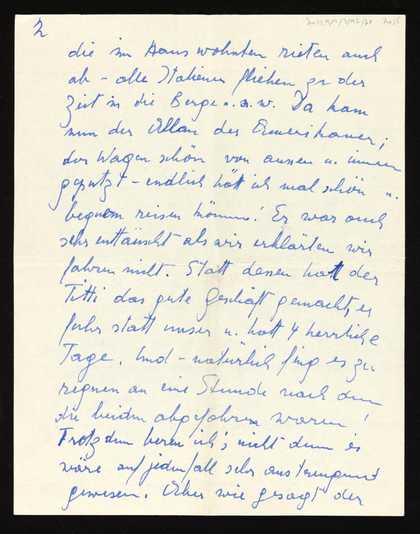 2
die im Haus wohnten rieten auch
ab – alle Italiener fliehen zu der
Zeit in die Berge u.s.w. Da kam
nun der Allan des Amerikaner;
der Wagen schön von aussen u. innen
geputzt – endlich hätt ich mal schön u.
bequem reisen können! Er war auch
sehr enttäuscht als wir erklärten wir
fahren nicht. Statt dessen hatt der
Titti das gute Geschäft gemacht, er
fuhr statt unser u. hatt 4 herrliche
Tage. Und – natürlich fing es zu
regnen an eine Stunde nach dem
die beiden abgefahren waren!
Trotzdem bereu ich's nicht denn es
wäre auf jeden fall sehr anstrengend
gewesen. Aber wie gesagt der